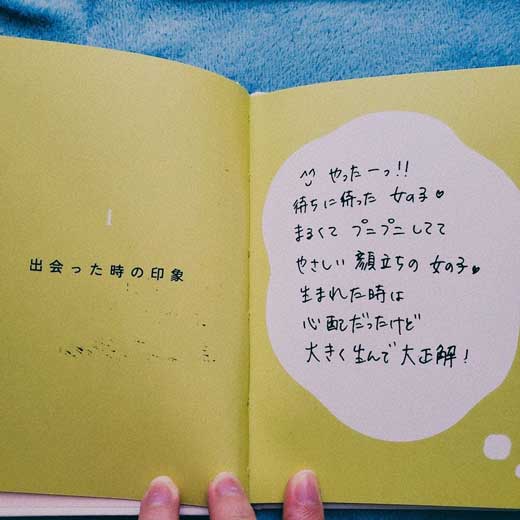 1
出会った時の印象
やったーっ!!
待ちに待った 女の子♥
まるくて プニプニしてて
やさしい 顔立ちの 女の子♥
生まれた時は
心配だったけど
大きく生んで大正解!